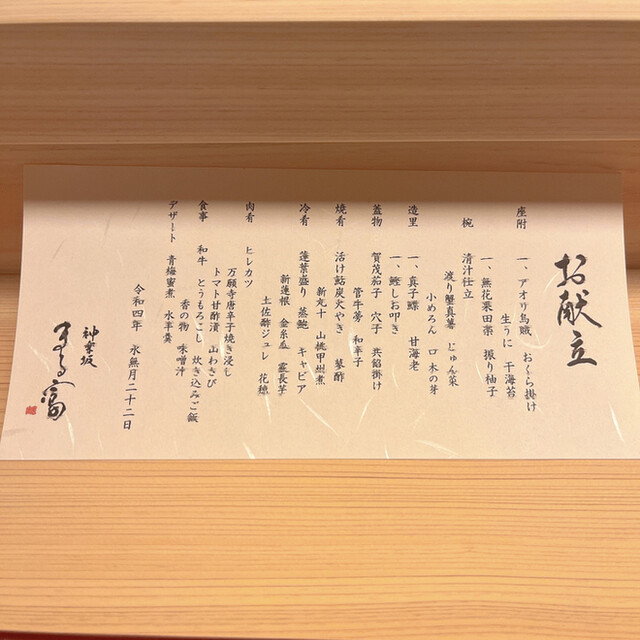 お献立
座附
一、アオリ烏賊 おくら掛け
生うに 干海苔
一、無花果田楽 振り柚子
椀
清汁仕立
渡り蟹真薯 じゅん菜
小めろん 口 木の芽
造里
一、真子鰈 甘海老
一、鰹しお叩き
蓋物
賀茂茄子 穴子 共餡掛け
管牛蒡 和辛子
焼肴
活け鮎炭火やき 蓼酢
新丸十 山桃甲州煮
冷肴
蓬莱盛り 蒸鮑 キャビア
新蓮根 金糸瓜 蠶長芋
土佐酢ジュレ 花穂
肉肴
ヒレカツ
万願寺唐辛子焼き浸し
トマト甘酢漬 山わさび
食事
和牛 とうもろこし 炊き込みご飯
香の物 味噌汁
デザート
青梅蜜煮 水羊羹
令和四年 水無月二十二日
神楽坂